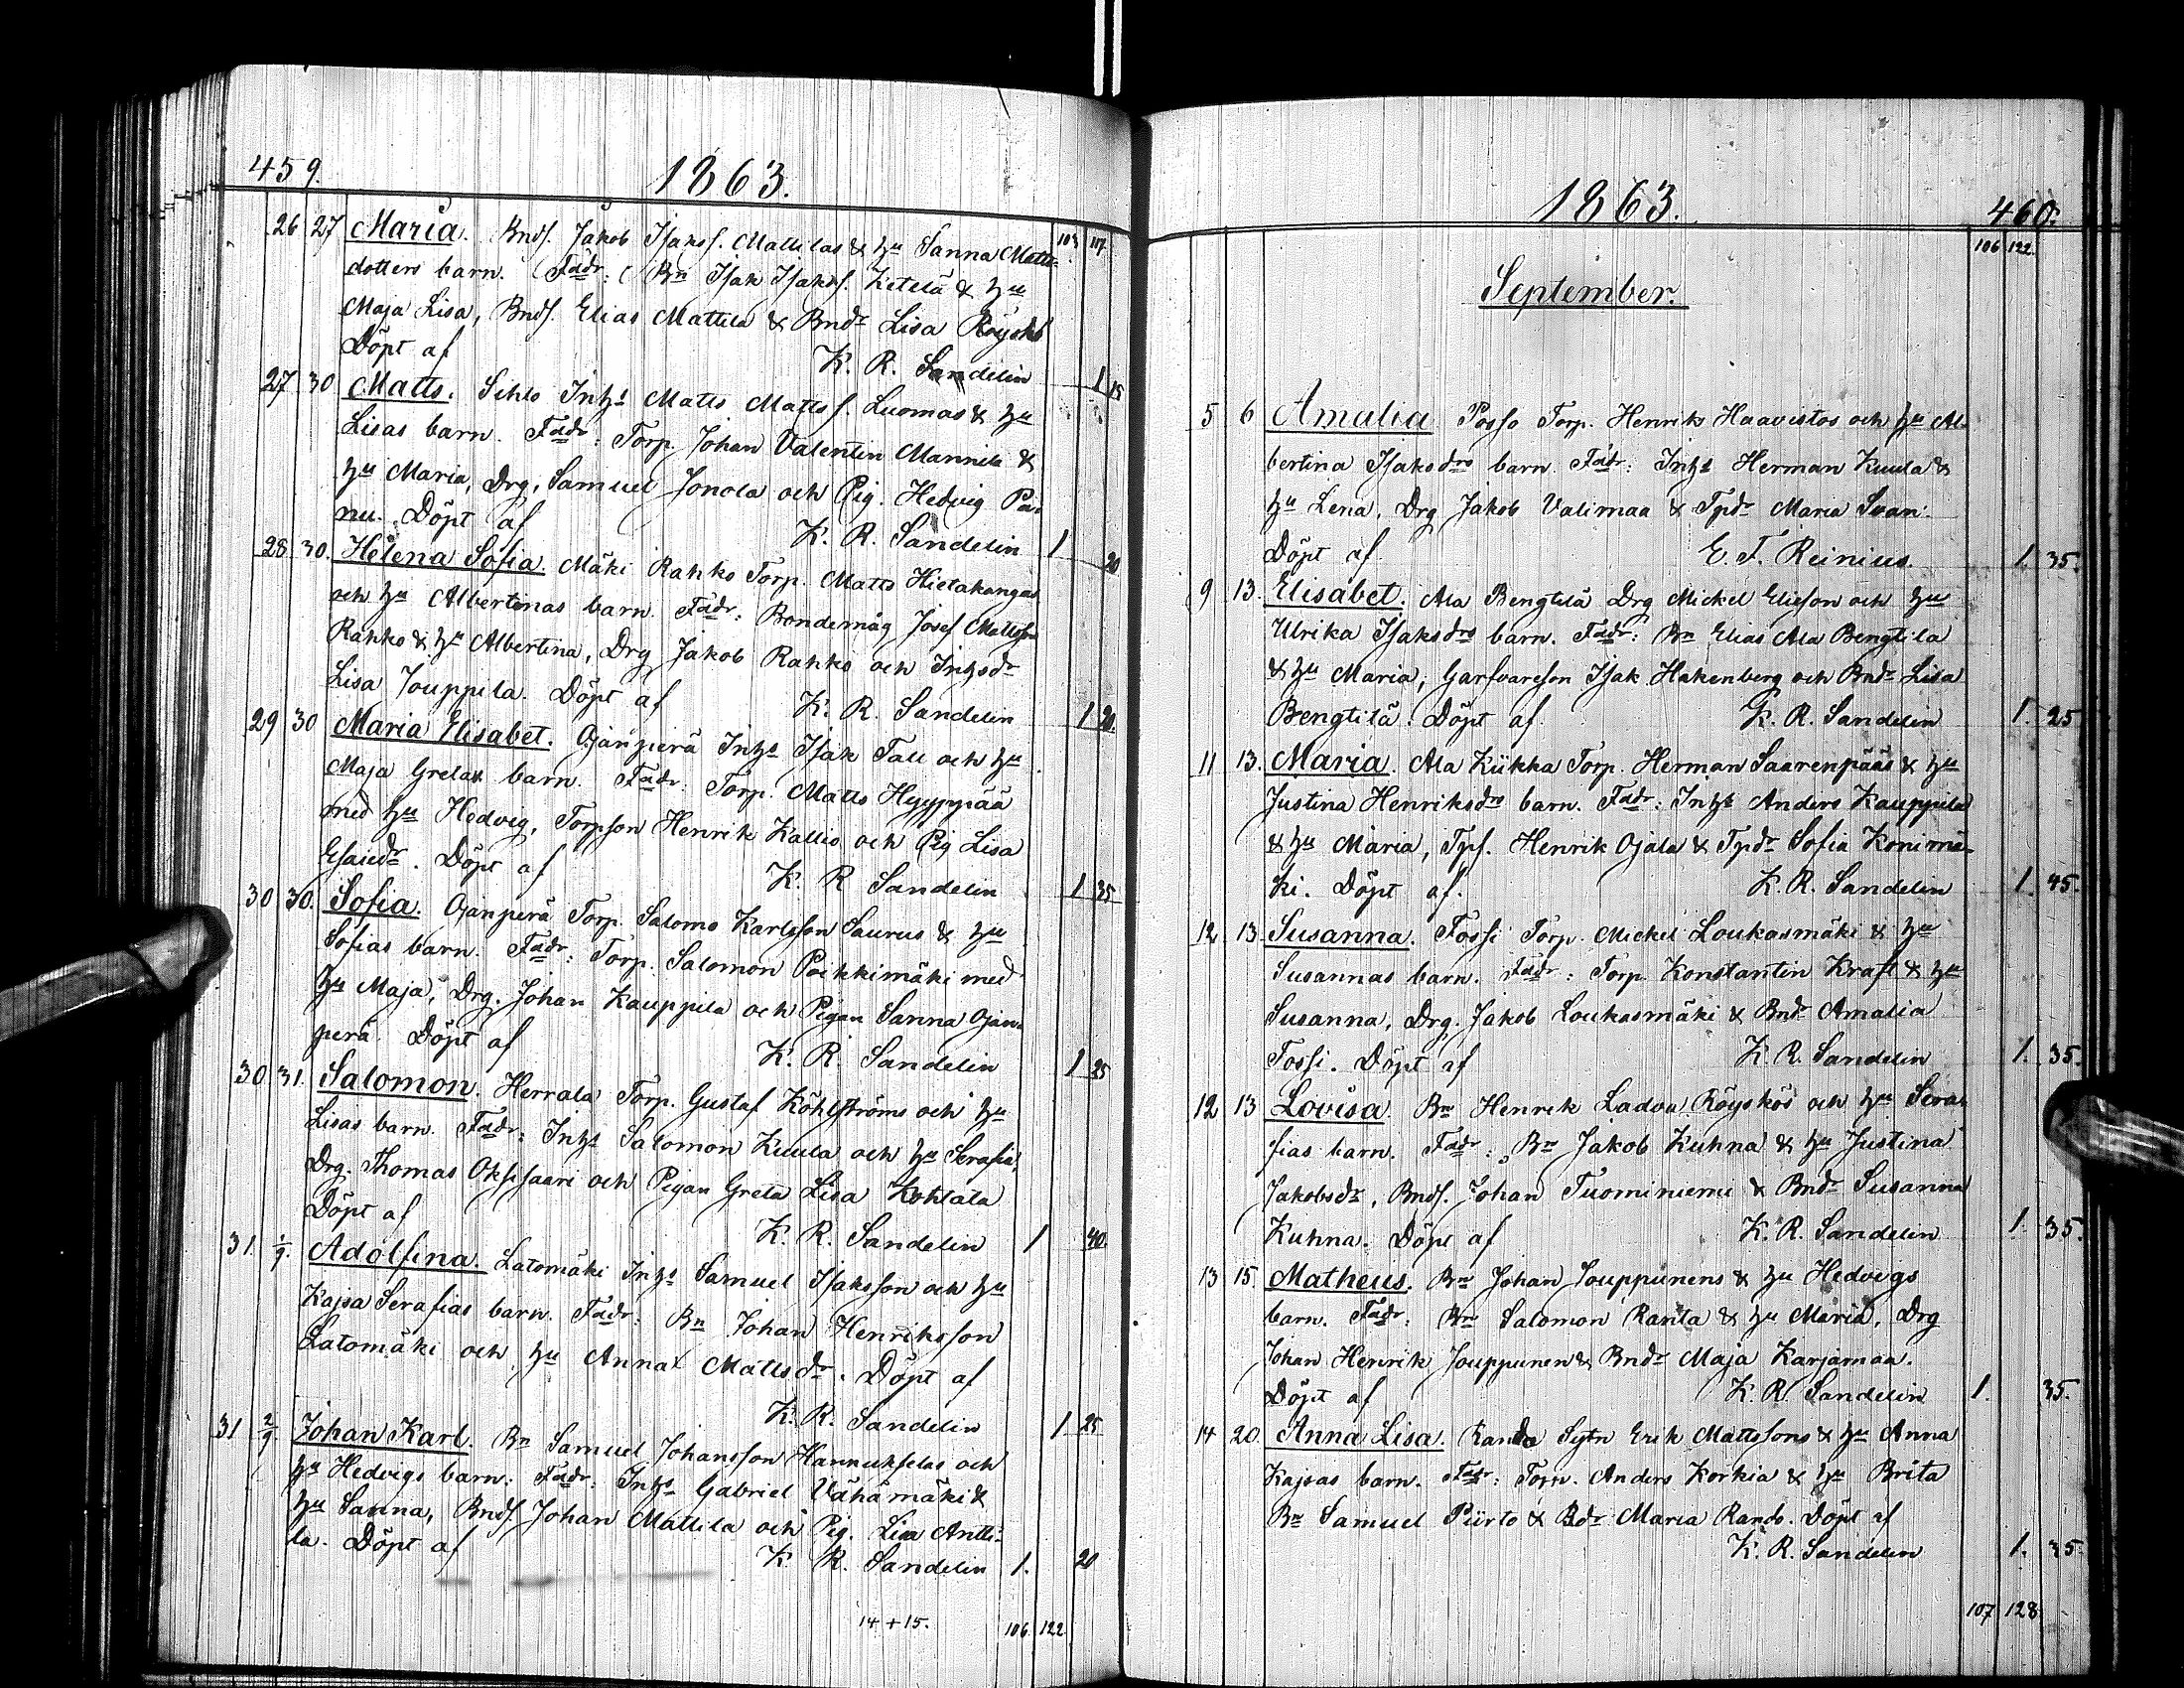 459. 1863.
103. 107.
26 27 Maria. Bndf. Jakob Isaksf. Mattilas & hu Sanna Matts-
dotters barn. Fadr: Bn Isak Isaksf. Ketelä & hu
Maja Lisa, Bndf. Elias Mattila & Bndr Lisa Röyskö
Döpt af K. R. Sandelin 1 15
27 30 Matts. Sthlo Inhs Matts Mattsf. Luomas & hu
Lisas barn. Fadr: Torp. Johan Valentin Mannila &
hu Maria, Drg. Samuel Jonola och Pig. Hedvig Pai-
nu. Döpt af K. R. Sandelin 1 20
28 30. Helena Sofia. Mäki Rahko Torp. Matts Hietakangas
och hu Albertinas barn. Fadr: Bondemåg Josef Mattsson
Rahko & hu Albertina, Drg Jakob Rahko och Inhsdr
Lisa Jouppila. Döpt af K. R. Sandelin 1 20.
29 30 Maria Elisabet. Ojanperä Inhs Isak Tall och hu
Maja Gretas barn. Fadr: Torp. Matts Hyyppää
med hu Hedvig, Torpson Henrik Kallio och Pig Lisa
Esaiedr. Döpt af K. R Sandelin 1 35
30 30. Sofia. Ojanperä Torp. Salomo Karlsson Saurus & hu
Sofias barn. Fadr: Torp. Salomon Poikkimäki med
hu Maja, Drg. Johan Kauppila och Pigan Sanna Ojan-
perä. Döpt af K. R. Sandelin 1 25
30. 31. Salomon. Herrala Torp. Gustaf Köhlströms och hu
Lisas barn. Fadr: Inhs Salomon Kuula och hu Serafia,
Drg. Thomas Oksisaari och Pigan Greta Lisa Kohtala
Döpt af K. R. Sandelin 1 40.
31. 1/9. Adolfina. Latomäki Inhs Samuel Isaksson och hu
Kajsa Serafias barn. Fadr: Bn Johan Henriksson
Latomäki och hu Anna Mattsdr. Döpt af
K. R. Sandelin 1 25
31 2/9. Johan Karl. Bn Samuel Johansson Hannukselas och
hu Hedvigs barn: Fadr: Inhs Gabriel Vähämäki &
hu Sanna, Bndf. Johan Mattila och Pig. Lisa Antti-
la. Döpt af K. R. Sandelin 1. 20
14 + 15. 106. 122
1863. 460.
106 122
September.
5 6 Amalia Posso Torp. Henriks Haavistos och hu Al-
bertina Isaksdrs barn. Fadr: Inhs Herman Kuula &
hu Lena, Drg Jakob Valimaa & Tpdr Maria Svan.
Döpt af E. F. Reinius. 1. 35.
9 13. Elisabet. Ala Bengtilä Drg Mickel Elieson och hu
Ulrika Isaksdrs barn. Fadr: Bn Elias Ala Bengtila
& hu Maria, Garfvareson Isak Hakenberg och Bndr Lisa
Bengtilä. Döpt af. K. R. Sandelin 1. 25
11 13. Maria. Ala Kiikka Torp. Herman Saarenpääs & hu
Justina Henriksdrs barn. Fadr: Inhs Anders Kauppila
& hu Maria, Tpf. Henrik Ojala & Tpdr Sofia Konimä-
ki. Döpt af. K. R. Sandelin 1. 45.
12 13 Susanna. Fossi Torp. Mickel Loukasmäki & hu
Susannas barn. Fadr: Torp. Konstantin Kraft & hu
Susanna, Drg. Jakob Loukasmäki & Bndr Amalia
Fossi. Döpt af K. R. Sandelin 1. 35.
12 13 Lovisa. Bn Henrik Ladva Röyskös och hu Sera-
fias barn. Fadr: Bn Jakob Kuhna & hu Justina
Jakobsdr, Bndf. Johan Tuominiemi & Bndr Susanna
Kuhna. Döpt af K. R. Sandelin 1. 35.
13 15. Matheus. Bn Johan Jouppunens & hu Hedvigs
barn. Fadr: Bn Salomon Ranta & hu Maria, Drg
Johan Henrik Jouppunen & Bndr Maja Karjamaa.
Döpt af K. R. Sandelin 1. 35.
14 20. Anna Lisa. Rando Sytn Erik Mattssons & hu Anna
Kajsas barn. Fadr: Torp. Anders Korkia & hu Brita
Bn Samuel Piirto & Bdr Maria Rando. Döpt af
K. R. Sandelin 1. 35.
107 128